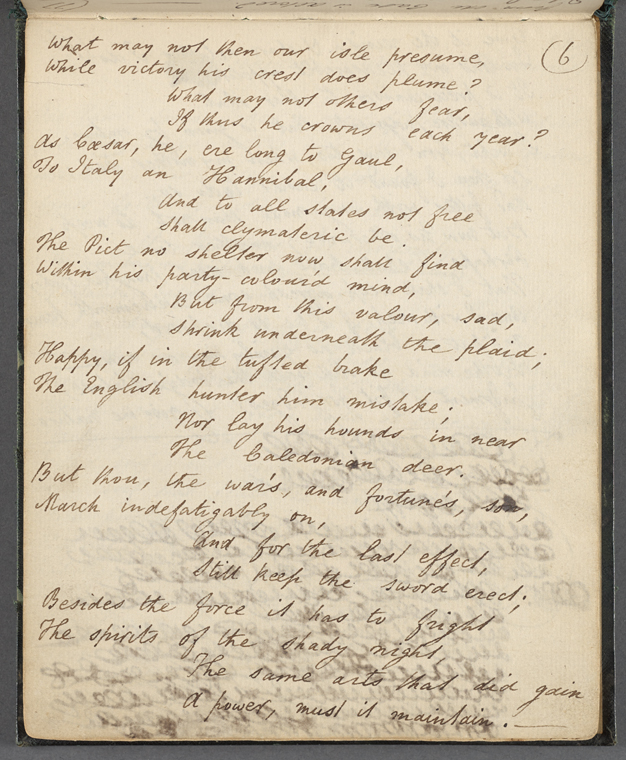 (6
What may not then our isle presume,
While victory his crest does plume?
What may not others fear,
If thus he crowns each year?
As Cæsar, he, ere long to Gaul,
To Italy an Hannibal,
And to all states not free
Shall clymateric be.
The Pict no shelter now shall find
Within his party-colour'd mind,
But from this valour, sad,
Shrink underneath the plaid;
Happy, if in the tufted brake
The English hunter him mistake;
Nor lay his hounds in near
The Caledonian deer.
But thou, the war's, and fortune's, son,
March indefatigably on,
And for the last effect,
Still keep the sword erect;
Besides the force it has to fright
The spirits of the shady night
The same arts that did gain
A power, must it maintain.—